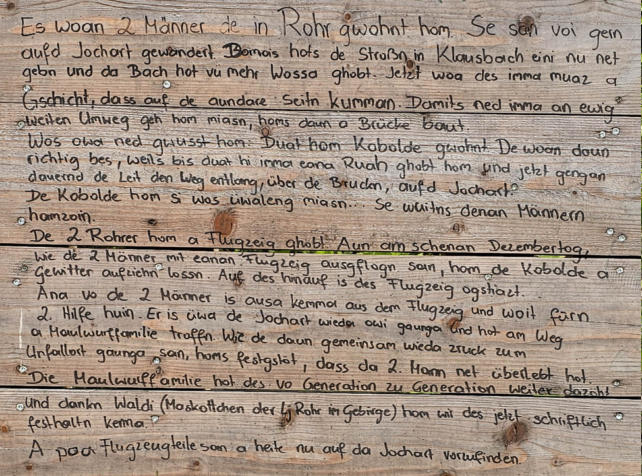 Es woan 2 Männer de in Rohr gwohnt hom. Se san voi gern
aufd Jochart gewandert. Damois hots de Stroßn in Klausbach eini nu net
gebn und da Bach hot vü mehr Wossa ghobt. Jetzt woa des imma muaz a
Gschicht, dass auf de aundare Seitn kumman. Damits ned imma an ewig
weiten Umweg geh hom miasn, homs daun a Brücke baut.
Wos owa ned gwusst hom: Duat hom Kobolde gwohnt. De woan daun
richtig bes, weils bis duat hi imma eana Ruah ghobt hom und jetzt gengan
dauernd de Leit den Weg entlang, über de Bruckn, aufd Jochart?
De Kobolde hom si wos üwaleng miasn... Se wuitns denan Männern
hamzoin.
De 2 Rohrer hom a Flugzeig ghobt. Aun am schenan Dezembertog,
wie de 2 Männer mit eanan Flugzeig ausgflogn san, hom de Kobolde a
Gewitter aufziehn lossn. Auf des hinauf is des Flugzeig ogstiazt.
Ana vo de 2 Männer is ausa kemma aus dem Flugzeig und woit fürn
2. Hilfe huin. Er is üwa de Jochart wieda owi gaunga und hot am Weg
a Maulwurffamilie troffn. Wie de daun gemeinsam wieda zruck zum
Unfallort gaunga san, homs festgstöt, dass da 2. Mann net überlebt hot.
Die Maulwurffamilie hot des vo Generation zu Generation weiter dazoht
und dankn Waldi (Maskottchen der Lj Rohr im Gebirge) hom wir des jetzt schriftlich
festhaltn kenna.
A poa Flugzeugteile san a heite nu auf da Jochart vorzufinden.